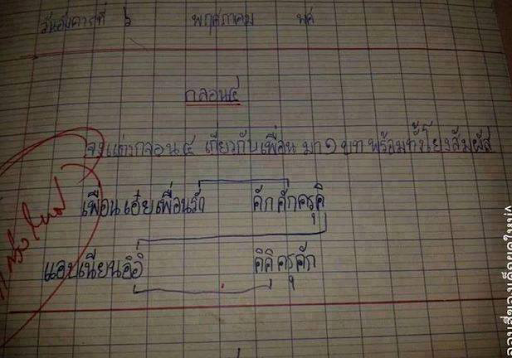 วันอังคารที่ ๖ พฤษภาคม พศ
กลอน๔
จงแต่งกลอน ๔ เกี่ยวกับเพื่อน มา ๑ บท พร้อมทั้งโยงสัมผัส
เพื่อนเอ๋ยเพื่อนรัก คักคักครุคิ
แอบเนียนอิอิ คิคิครุคัก